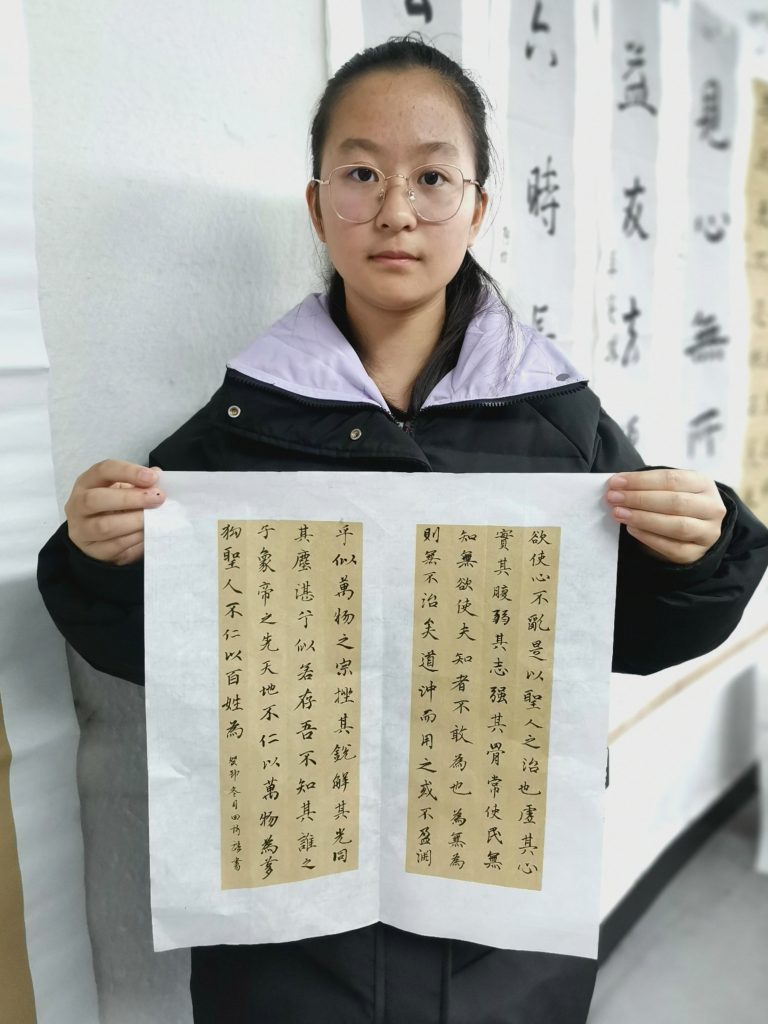 欲使心不亂是以聖人之治也虛其心
實其腹弱其志强其骨常使民無
知無欲使夫知者不敢為也為無為
則無不治矣道沖而用之或不盈淵
乎似萬物之宗挫其銳解其光同
其塵湛兮似若存吾不知其誰之
子象帝之先天地不仁以萬物為芻
狗聖人不仁以百姓為
癸卯冬月田書
見心無所
益友
六時